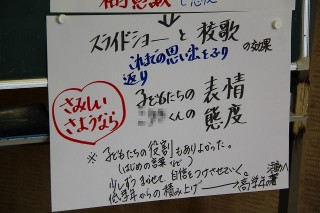 スライドショーと校歌の効果
これまでの思い出をふり返り
さみしい
さようなら
子どもたちの表情
くんの態度
※子どもたちの役割もありよかった。
(はじめの言葉など)
少しずつまかせて、自信をつけさせていく。
低学年からの積み上げ→高学年の